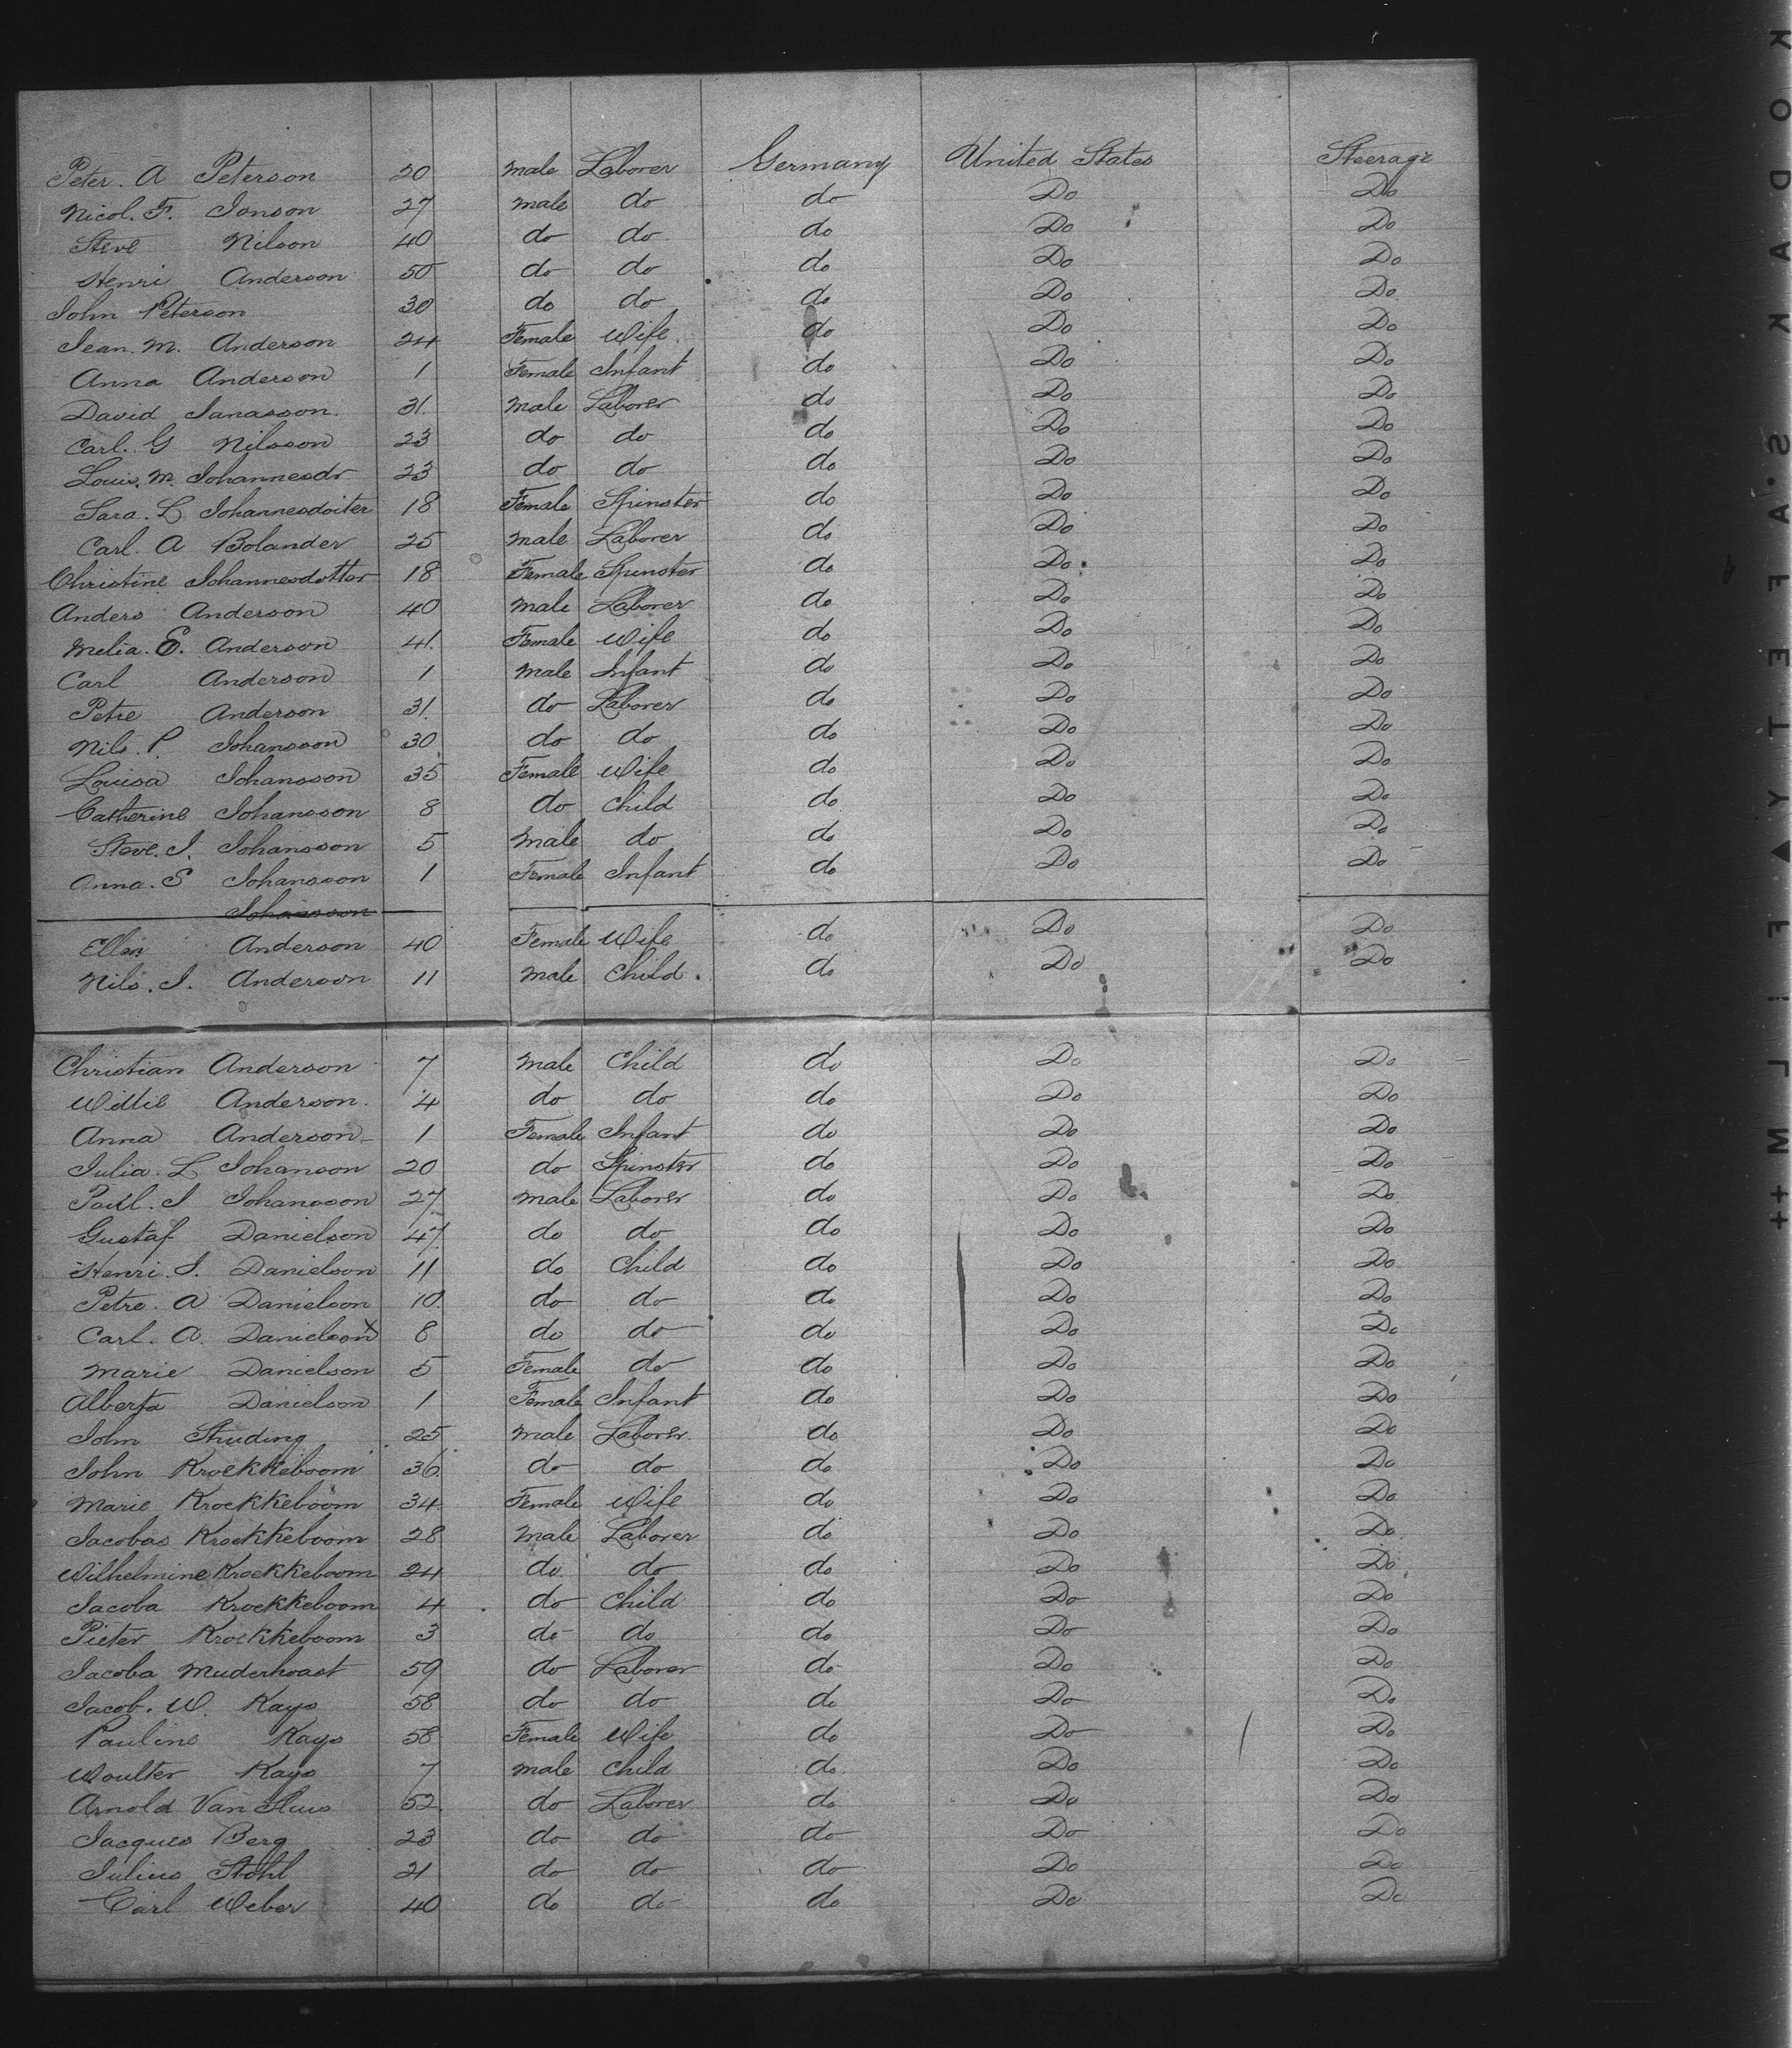 Peter. A Peterson 20 male Laborer Germany United States Steerage
Nicol. F. Jonson 27 male do do Do Do
Steve Nilson 40 do do do Do Do
Henri Anderson 50 do do do Do Do
John Peterson 30 do do do Do Do
Jean. M. Anderson 24 Female Wife do Do Do
Anna Anderson 1 Female Infant do Do Do
David Janasson 31. male Laborer do Do Do
Carl. G Nilsson 23 do do do Do Do
Louis. M. Johannesdr 23 do do do Do Do
Sara. L Johannesdoiter 18 Female Spinster do Do Do
Carl. A Bolander 25 male Laborer do Do Do
Christine Johannesdotter 18 Female Spinster do Do Do
Anders Anderson 40 male Laborer do Do Do
Melia. E. Anderson 41. Female Wife do Do Do
Carl Anderson 1 male Infant do Do Do
Petre Anderson 31. do Laborer do Do Do
Nils. P. Johansson 30 do do do Do Do
Louisa Johansson 35 Female Wife do Do Do
Catherine Johansson 8 do Child do Do Do
Steve. J. Johansson 5 male do do Do Do
Anna. S Johansson 1 Female Infant do Do Do
Johansson
Ellen Anderson 40 Female Wife do Do Do
Nils. J. Anderson 11 male Child. do Do Do
Christian Anderson 7 male Child do Do Do
Willie Anderson. 4 do do do Do Do
Anna Anderson 1 Female Infant do Do Do
Julia. L Johanson 20 do Spinster do Do Do
J Johansson 27 male Laborer do Do Do
Gustaf Danielson 47 do do do Do Do
Henri. J. Danielson 11 do Child do Do Do
Petre. A Danielson 10. do do do Do Do
Carl. A. Danielson x 8 do do do Do Do
Marie Danielson 5 Female do do Do Do
Alberta Danielson 1 Female Infant do Do Do
John Studing 25 male Laborer. do Do Do
John Kroekkeboom 36 do do do Do Do
Marie Kroekkeboom 34 Female Wife do Do Do
Jacobas Kroekkeboom 28 male Laborer do Do Do
Wilhelmine Kroekkeboom 24 do do do Do Do
Jacoba Kroekkeboom 4 do Child do Do Do
Pieter Kroekkeboom 3 do do do Do Do
Jacoba Muderhoast 59 do Laborer do Do Do
Jacob. W. Kays 58 do do do Do Do
Pauline Kays 58 Female Wife do Do Do
Woulter Kays 7 male Child do Do Do
Arnold Van Sluis 52 do Laborer do Do Do
Jacques Berg 23 do do do Do Do
Julius Stohl 21 do do do Do Do
Carl Weber 40 do do do Do Do
KODAK S.A.FETY FILM ++